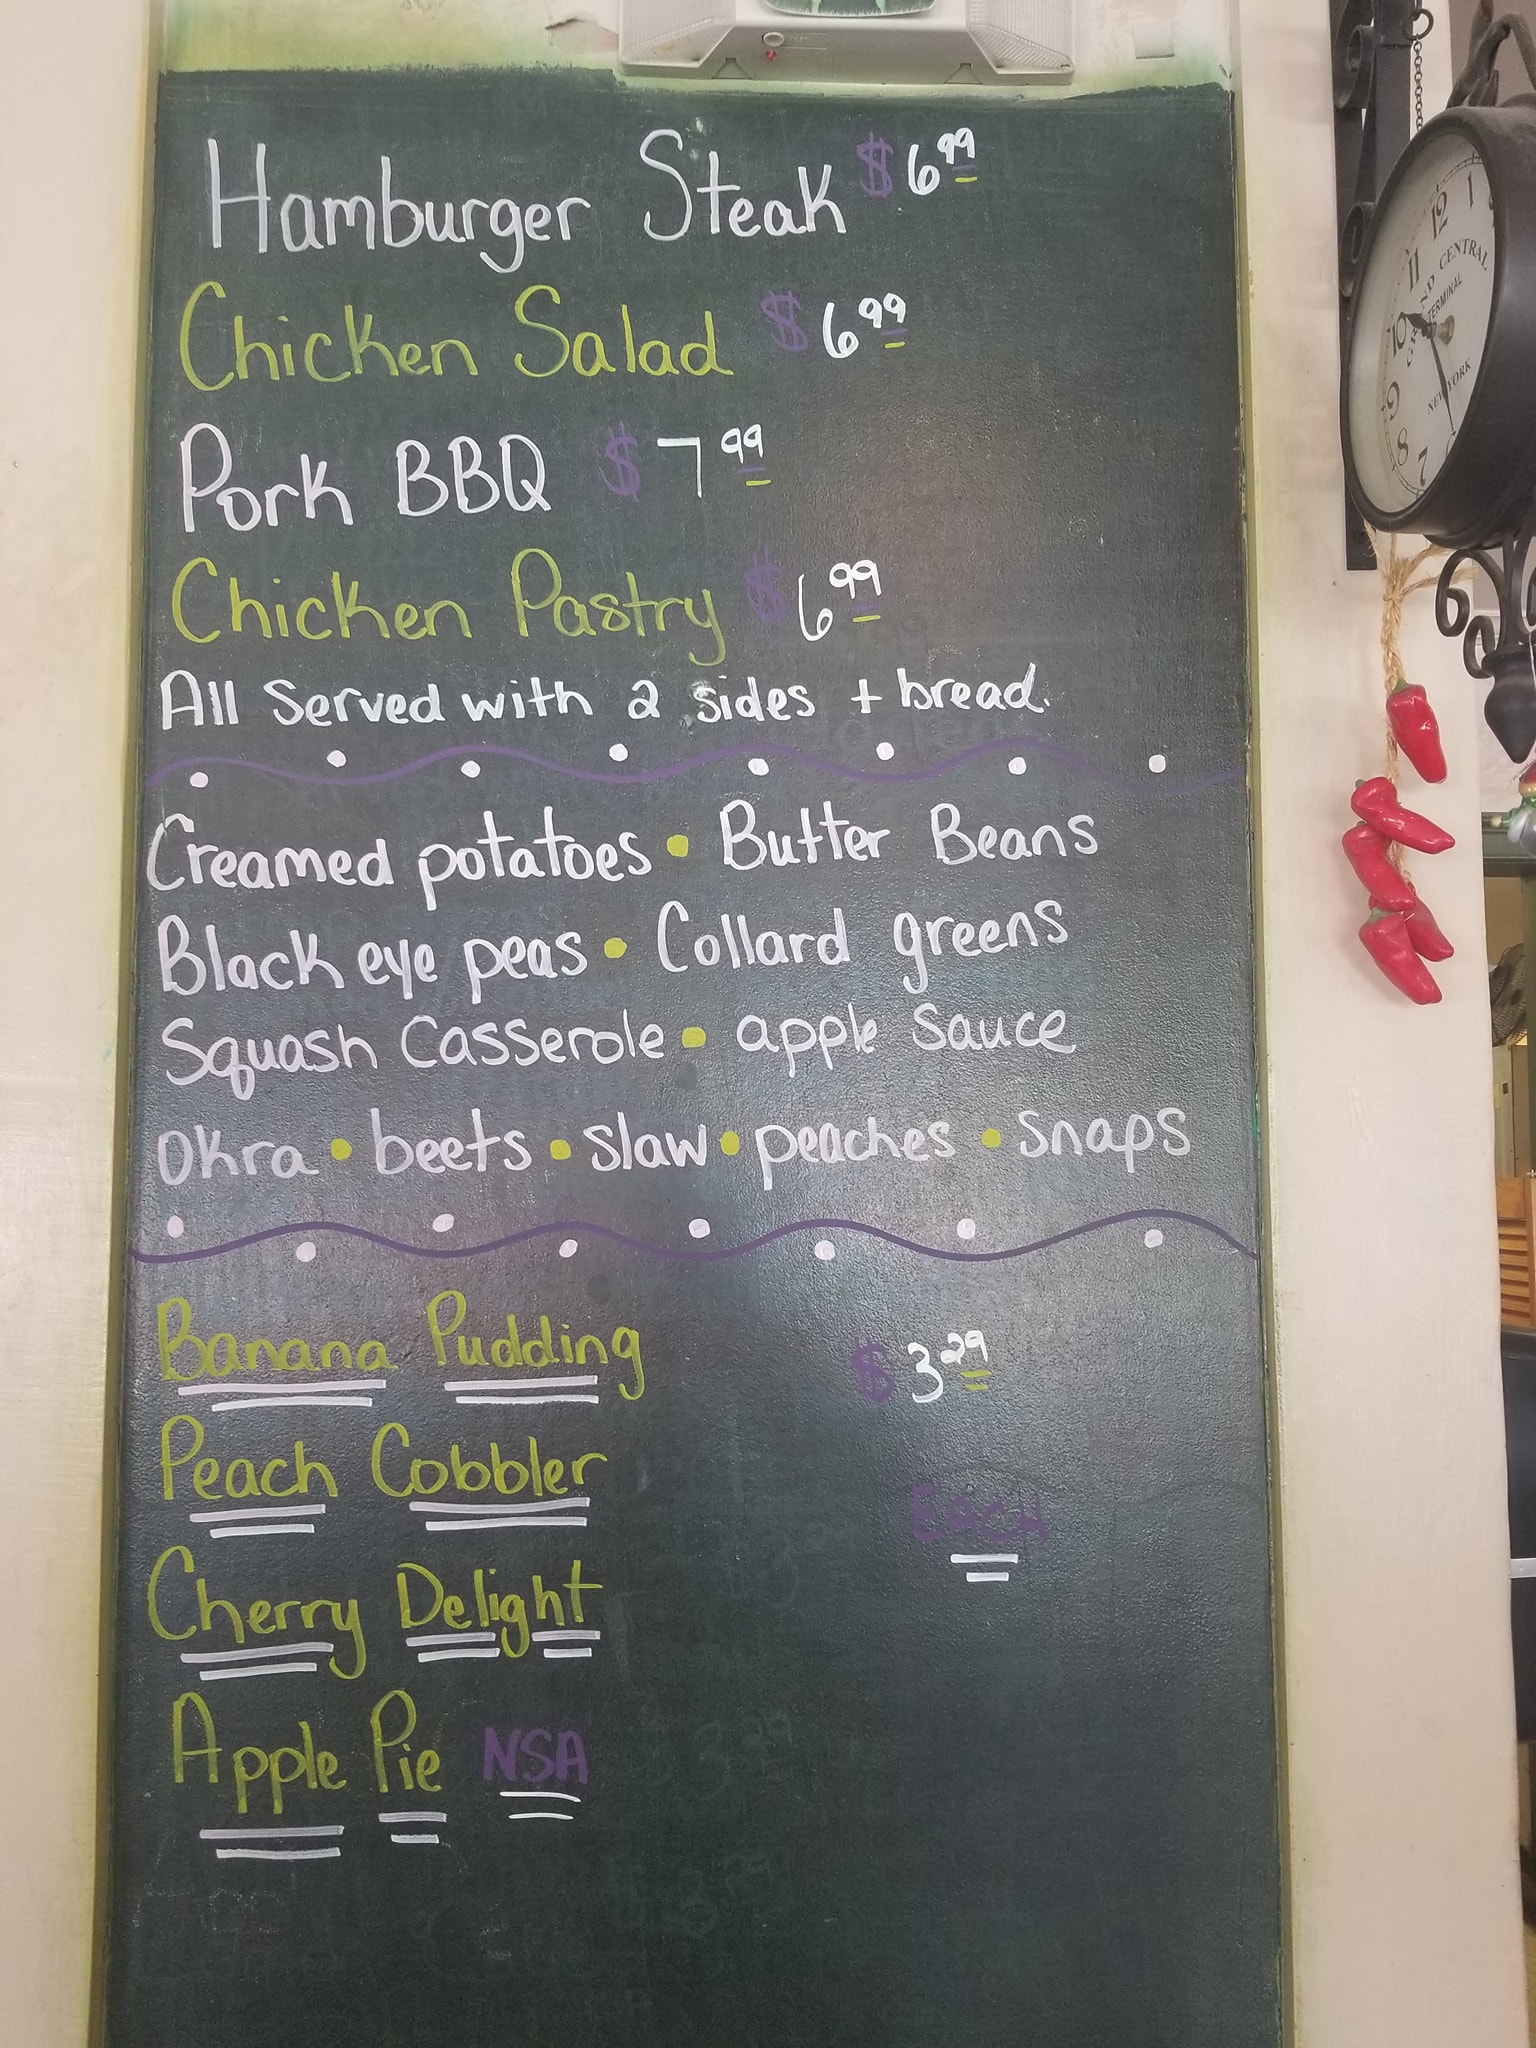 Hamburger Steak $6.99
Chicken Salad $6.99
Pork BBQ $7.99
Chicken Pastry $6.99
All Served with 2 sides + bread.
Creamed potatoes • Butter Beans
Black eye peas • Collard greens
Squash Casserole • apple sauce
okra • beets • slaw • peaches • snaps
Banana Pudding $3.29
Peach Cobbler
EACH
Cherry Delight
Apple Pie NSA
11 12 1
10
9
8
7
CENTRAL
TERMINAL
NEW YORK